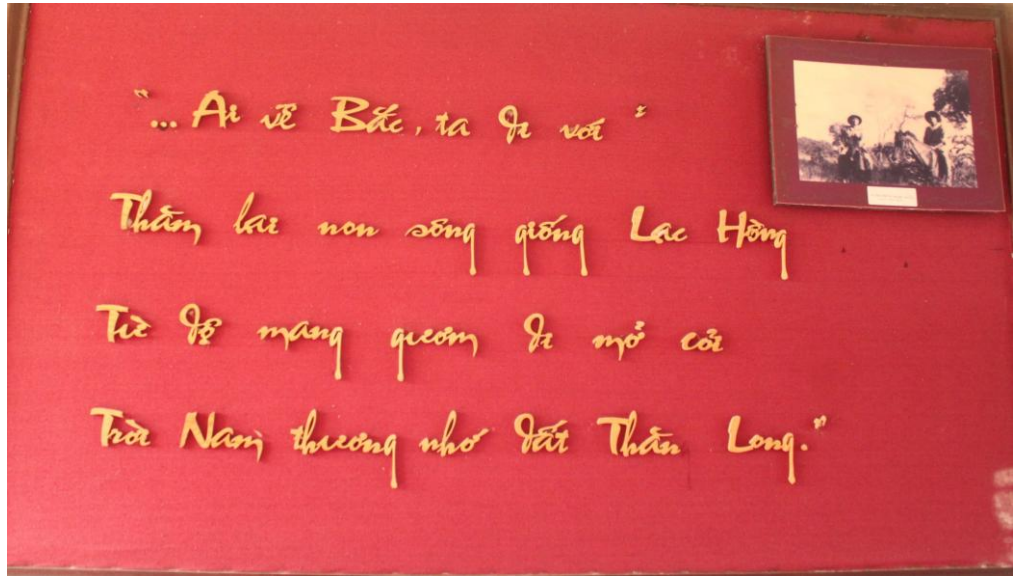 "... Ai về Bắc, ta đi với "
Thăm lại non sông giống Lạc Hồng
Từ độ mang gươm đi mở cỏi
Trời Nam thương nhớ đất Thăn Long."